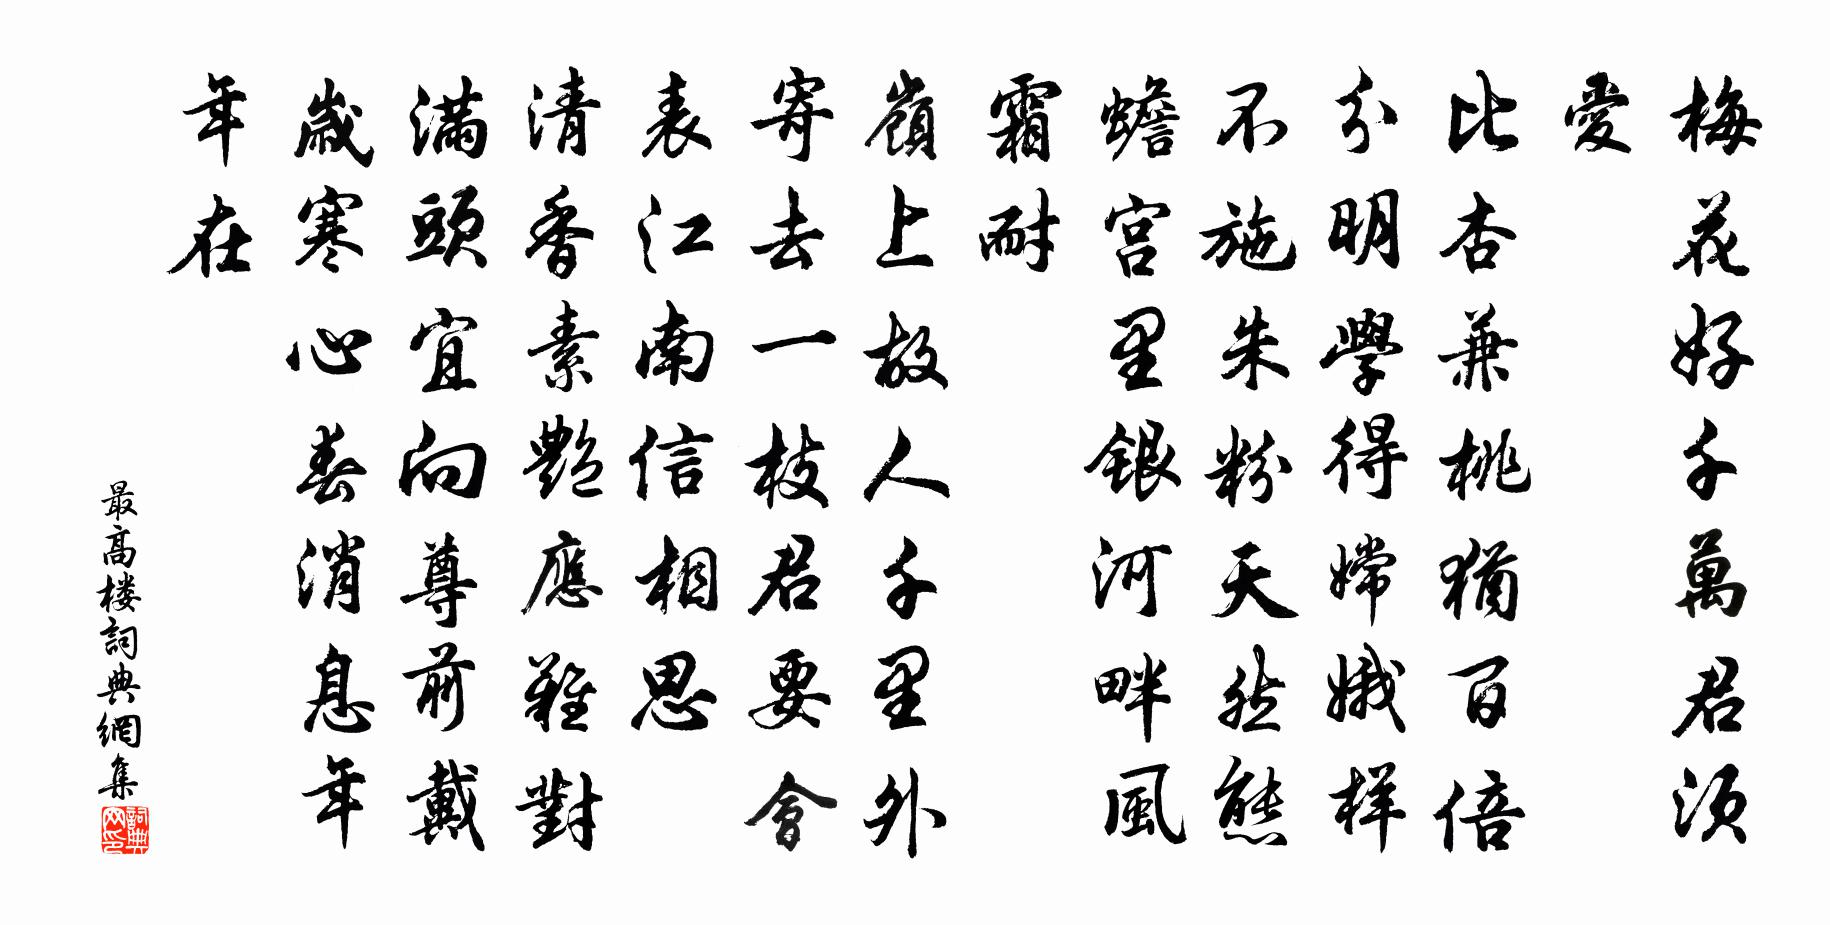 梅花好千萬君須
愛
比杏兼桃猶百倍
分明學得嫦娥样
不施朱粉天然態
蟾宫里銀河畔風
霜耐
嶺上故人千里外
寄去一枝君要會
表江南信相思
清香素艷應難對
滿頭宜向尊前戴
歲寒心春消息年
年在
最高楼詞典網集
詞典网印